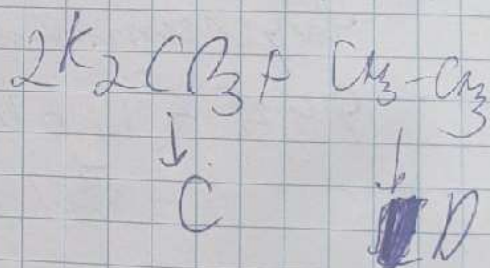 2K₂CO₃ + CH₃-CH₃
↓ ↓
C D